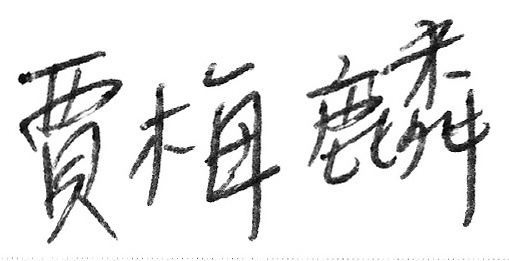 賈梅麟